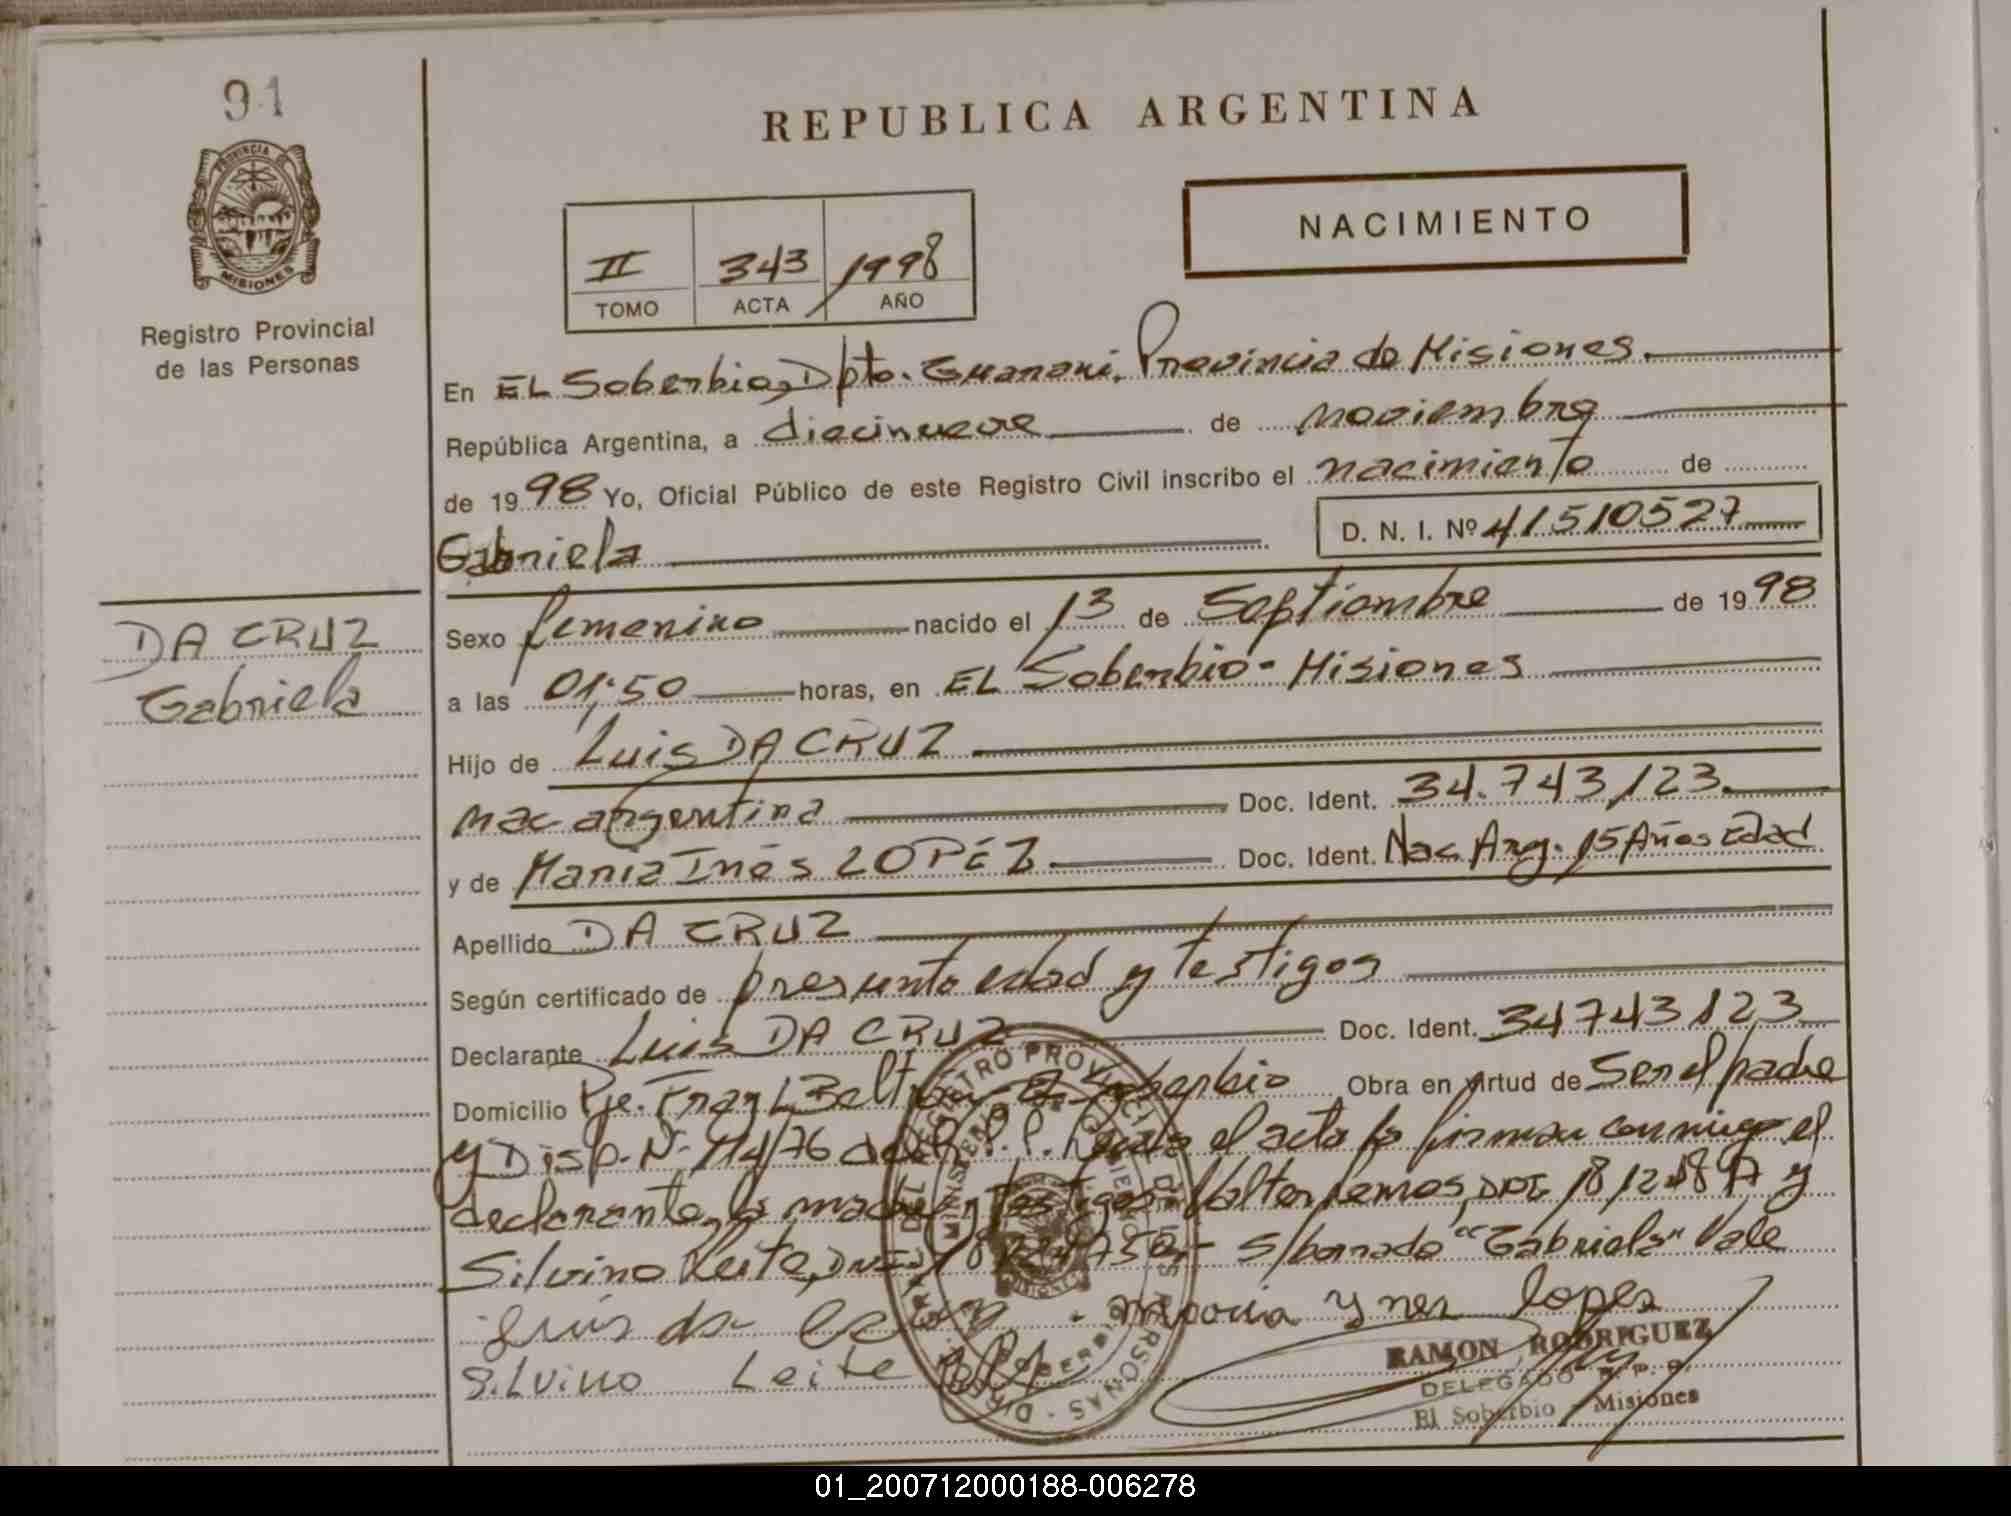 91
PROVINCIA DE
MISIONES
Registro Provincial
de las Personas
REPUBLICA ARGENTINA
NACIMIENTO
II 343 1998
TOMO ACTA AÑO
En EL Soberbio, Dpto. Guarani. Provincia de Misiones.
República Argentina, a diecinueve de noviembre
de 1998 Yo, Oficial Público de este Registro Civil inscribo el nacimiento de
Gabriela D. N. I. Nº 41510527
DA CRUZ
Gabriela
Sexo femenino nacido el 13 de Septiembre de 1998
a las 01,50 horas, en EL Soberbio - Misiones
Hijo de Luis DA CRUZ
nac argentina Doc. Ident. 34.743,123
y de Maria Inés LOPÉZ Doc. Ident. Nac Arg. 15 Años Edad
Apellido DA CRUZ
Según certificado de presunta edad y testigos
Declarante Luis DA CRUZ Doc. Ident. 34743123
Domicilio Pje. Fray L. Beltran El Soberbio Obra en virtud de Ser el padre
y Disp. Nº 114/76 del R.P.P. el acta la firman conmigo el
declarante, la madre y testigos Valter Lemos, DNI y
Silvino Leite, DNI S/borrado "Gabriela" Vale
Luis da maria ynes lopes
Silvino Leite
RAMON RODRIGUEZ
DELEGADO R. P. P.
El Soberbio - Misiones
01_200712000188-006278